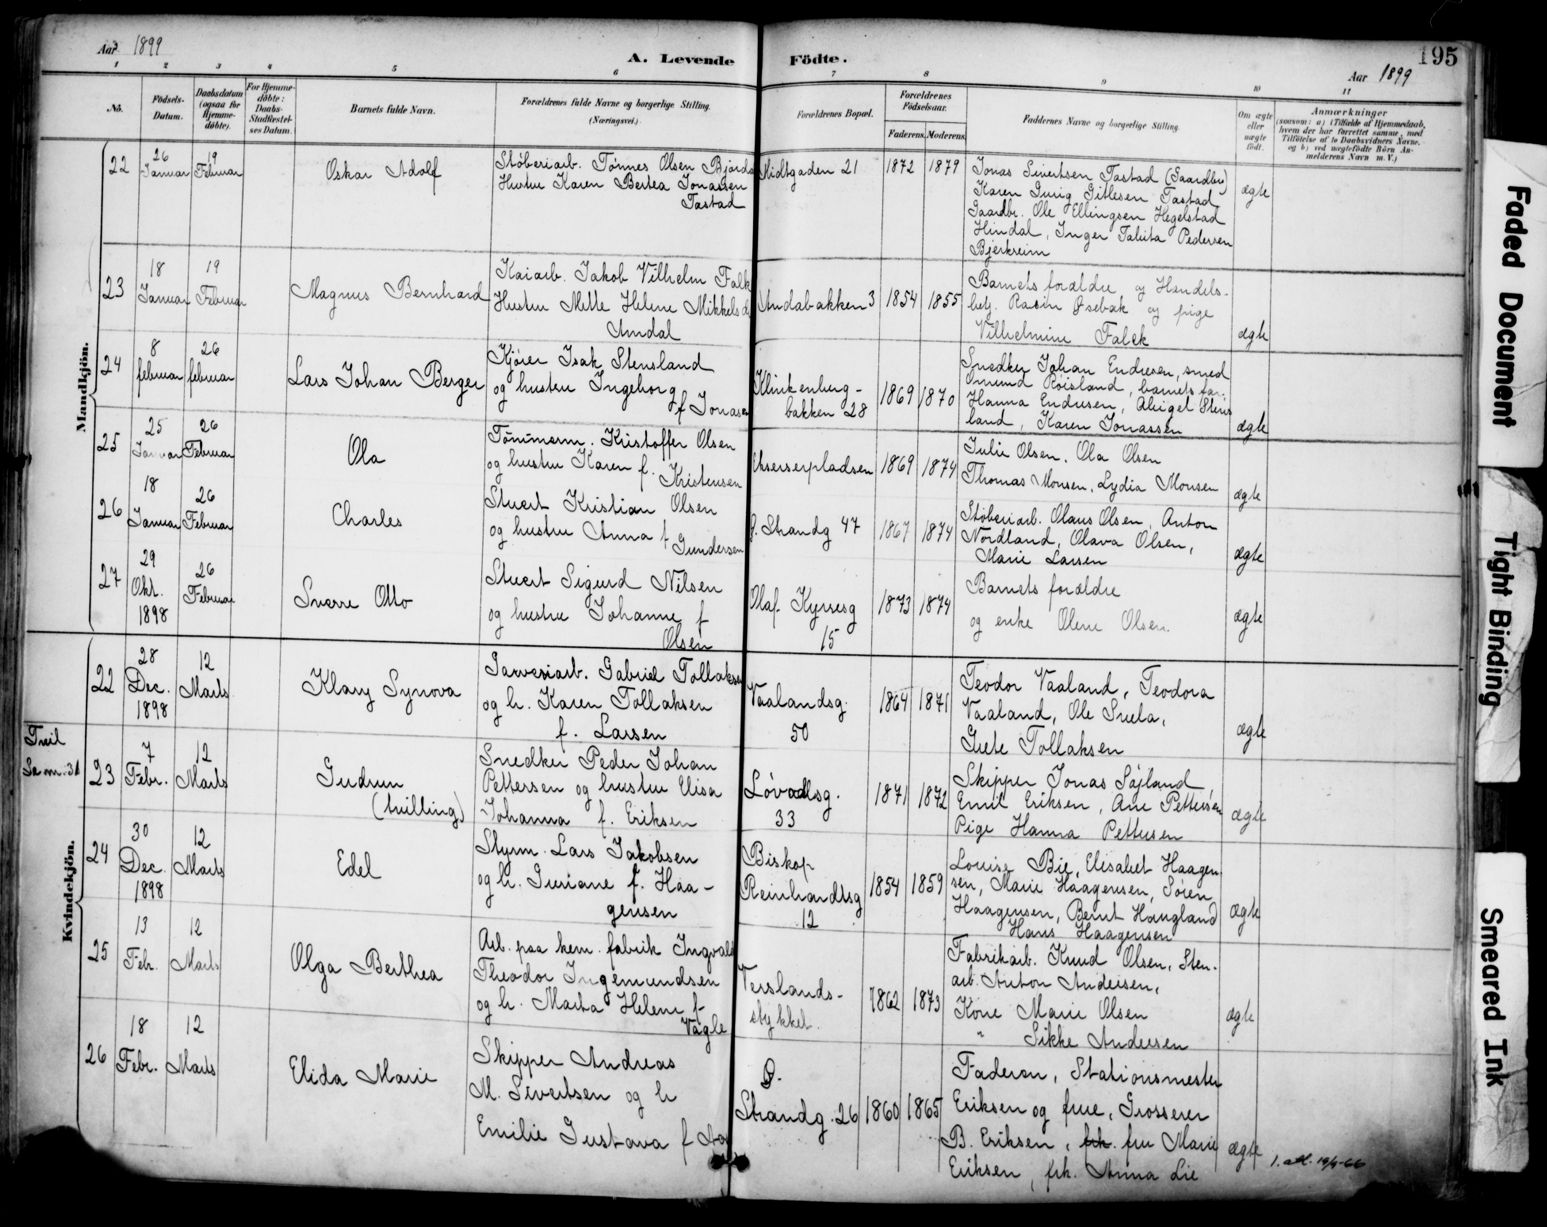 Aar 1899
A. Levende Fødte.
195
Aar 1899
1 2 3 4 5 6 7 8 9 10 11
No.
Fødsels-Datum.
Daabsdatum (ogsaa for Hjemmedøbte).
For Hjemmedøbte: Daabs-Stadfæstelses Datum.
Barnets fulde Navn.
Forældrenes fulde Navne og borgerlige Stilling. (Næringsvei.)
Forældrenes Bopæl.
Forældrenes Fødselsaar.
Faderens. Moderens.
Faddernes Navne og borgerlige Stilling.
Om ægte eller uægte født.
Anmærkninger
(saasom: a) (Tilfælde af Hjemmedaab, hvem der har forrettet samme, med Tilføielse af to Daabsvidners Navne. og b) ved uægtefødte Børn Anmelderens Navn m. V.)
Mandkjön.
22
26 Januar
19 Februar
Oskar Adolf
Støberiarb. Tønnes Olsen
Hustru Karen Bertea Jonassen
Tastad
Midtgaden 21
1872
1879
Jonas Sivertsen Tastad (Gaardbr)
Karen Gurig Gitlesen Tastad
Gaardbr. Ole Ellingsen Hegelstad
Hindal, Inger Tabita Pedersen
Bjerkreim
ægte
23
18 Januar
19 Februar
Magnus Bernhard
Kaiarb. Jakob Vilhelm Falk
Hustru Mette Helene Mikkelsd.
Amdal
Andabakken 3
1854
1855
Barnets forældre og Handels-
betj. Rasin Øsebak og pige
Vilhelmine Falck
ægte
24
8 februar
26 februar
Lars Johan Berger
Kjører Isak Stensland
og hustru Ingeborg
f Jonasen
Klinkenberg-
bakken 28
1869
1870
Snedker Johan Endresen, smed
Omund Roisland, barnets far.
Hanna Endresen, Abigel Stens
land, Karen Jonassen
ægte
25
25 Januar
26 Februar
Ola
Tømmerm. Kristoffer Olsen
og hustru Karen f.
Kristensen
Ekserserpladsen
1869
1874
Julie Olsen. Ola Olsen
Thomas Monsen, Lydia Monsen
ægte
26
18 Januar
26 Februar
Charles
Stuert Kristian Olsen
og hustru Anna f
Gundersen
Ø. Strandg 47
1867
1874
Støberiarb. Olaus Olsen, Anton
Nordland, Olava Olsen,
Marie Larsen
ægte
27
29 Okt. 1898
26 Februar
Sverre Otto
Stuert Sigurd Nilsen
og hustru Johanne f
Olsen
Olaf Kyrresg
15
1873
1874
Barnets forældre
og enke Olene Olsen.
ægte
Kvindekjön.
22
28 Dec. 1898
12 Marts
Klary Synova
Garveriarb. Gabriel Tollaksen
og h. Karen Tollaksen
f. Larsen
Vaalandsg.
50
1864
1871
Teodor Vaaland, Teodora
Vaaland, Ole Svela,
Grete Tollaksen
ægte
Tvil
Se m. 31
23
7 Febr.
12 Marts
Gudrun
(tvilling)
Snedker Peder Johan
Pettersen og hustru Elisa
Johanna f. Eriksen
Løvdalsg.
33
1871
1872
Skipper Jonas Søjland
Emil Eriksen, Ane Pettersen
Pige Hanna Pettersen
ægte
24
30 Dec. 1898
12 Marts
Edel
Styrm. Lars Jakobsen
og h. Guriane f. Haa-
gensen
Biskop
Reinhardtsg
12
1854
1859
Louise Bie, Elisabet Haagen-
sen, Marie Haagensen, Søren
Haagensen, Bernt Haugland
Hans Haagensen
ægte
25
13 Febr.
12 Marts
Olga Berthea
Arb. paa kem. fabrik Ingvald
Theodor Ingemundsen
og h. Marta Helene f
Vagle
Verslands-
stykket.
1862
1873
Fabrikarb. Knud Olsen, Sten-
arb. Anton Andersen,
Kone Marie Olsen
" Sikke Andersen
ægte
26
18 Febr.
12 Marts
Elida Marie
Skipper Andreas
M. Sivertsen og h
Emilie Gustava f
Ø.
Strandg. 26
1860
1865
Faderen, Stationsmester
Eriksen og frue, Grosserer
B. Eriksen, frk. fru Marie
Eriksen, frk. Anna Lie
ægte
1. att. 19/4-66
Faded Document
Tight Binding
Smeared Ink